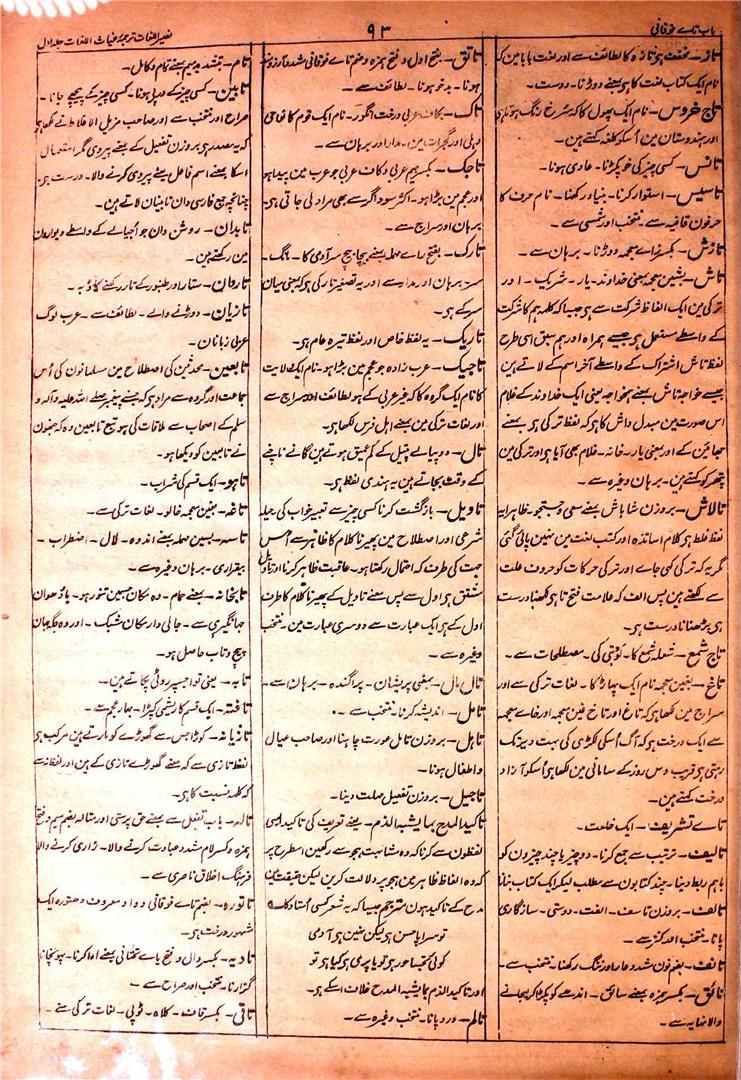 باب تاے فوقانی
۹۳
نصیر اللغات ترجمۂ غیاث اللغات جلد اول
تاز۔ مخفف ہو تازہ کا لطائف سے اور لغت ہا ہا مین کہ
نام ایک کتاب لغت کا ہے بمعنے دوڑنا۔ دوست۔
تاج خروس۔ نام ایک پھول کا کہ سُرخ رنگ ہوتا ہی
اور ہندوستان مین اُسکو کلغہ کہتے ہین۔
تانس۔ کسی چیز کی خو پکڑنا۔ عادی ہونا۔
تاسیس۔ استوار کرنا۔ بنیاد رکھنا۔ نام حرف کا
حرفون قافیہ سے۔ منتخب اور شمسی سے۔
تازش۔ بکسر زاے معجمہ دوڑنا۔ برہان سے۔
تاش۔ بشین معجمہ بمعنی خداوند۔ یار۔ شریک۔ اور
ترکی مین ایک الفاظ شرکت سے ہی جیسا کہ کلمہ ہم کا شرکت
کے واسطے مستعمل ہی جیسے ہمراہ اور ہم سبق اسی طرح
لفظ تاش اشتراک کے واسطے آخر اسم کے لاتے ہین
جیسے خواجہ تاش بمعنے ہمخواجہ یعنی ایک خداوند کے غلام
اس صورت مین مبدل داش کا ہی کہ لفظ ترکی ہی بمعنے
بھائین کے اور بمعنی یار۔ خانہ۔ غلام بھی آیا ہی اور ترکی مین
پتھر کو کہتے ہین۔ برہان وغیرہ سے۔
تالاش۔ بروزن شاباش بمعنے سعی و جستجو۔ ظاہرا یہ
لفظ غلط ہی کلام اساتذہ اور کتب لغت مین نہین پائی گئی
مگر یہ کہ ترکی کہی جاے اور ترکی حرکات کو حروف علت
سے لکھتے ہین پس الف کہ علامت فتح تا ہی لکھنا درست
ہی پڑھنا نا درست ہی۔
تاج شمع۔ شعلہ شمع کا۔ کوئی کی۔ مصطلحات سے۔
تاغ۔ بغین معجمہ نام ایک پہاڑ کا۔ لغات ترکی سے اور
سراج مین لکھا ہی کہ تاغ اور تاخ غین معجمہ اور خاے معجمہ
سے ایک درخت ہی کہ آگ اُسکی لکڑی کی بہت دیر تک
رہتی ہی قریب دس روز کے سامانی مین لکھا ہی اُسکو آزاد
درخت کہتے ہین۔
تاے تشریف۔ ایک خلعت۔
تالیف۔ ترتیب سے جمع کرنا۔ دو چیز یا چند چیزون کو
باہم ربط دینا۔ چند کتابون سے مطلب لیکر ایک کتاب بنانا
تالف۔ بروزن تاسف۔ الفت۔ دوستی۔ سازگاری
پانا۔ منتخب اور کنز سے۔
تانف۔ بضم نون مشدد عار اور ننگ رکھنا۔ منتخب سے۔
تائق۔ بکسر ہمزہ بمعنے سائق۔ اندھے کو پکڑ کر لیجانے
والا نہایہ سے۔
تائق۔ بفتح اول و فتح ہمزہ و ضم تاے فوقانی مشدد آرزومند
ہونا۔ بدخو ہونا۔ لطائف سے۔
تاک۔ بکاف عربی درخت انگور۔ نام ایک قوم کا نواحی
دہلی اور گجرات مین۔ مدار اور برہان سے۔
تاجک۔ بکسر جیم عربی و کاف عربی جو عرب مین پیدا ہو
اور عجم مین بڑا ہو۔ اکثر سوداگر سے بھی مراد لی جاتی ہی۔
برہان اور سراج سے۔
تارک۔ بفتح راے مہملہ بمعنے بیچا بیچ سر آدمی کا۔ مانگ۔
سر۔ برہان اور مدار سے اور یہ تصغیر تار کی ہی کہ بمعنی میان
سر کے ہی۔
تاریک۔ یہ لفظ خاص اور لفظ تیرہ عام ہی۔
تاجیک۔ عرب زادہ جو عجم مین بڑا ہو۔ نام ایک ولایت
کا نام ایک گروہ کا کہ غیر عربی کے ہو لطائف اور سراج سے
اور لغات ترکی مین بمعنے اہل فرس لکھا ہی۔
تال۔ دو پیالے پیتل کے کم عمیق ہوتے ہین گانے ناچنے
کے وقت بجاتے ہین یہ ہندی لفظ ہی۔
تاویل۔ بازگشت کرنا کسی چیز سے تعبیر خواب کی حیلۂ
شرعی اور اصطلاح مین پھیرنا کلام کا ظاہر سے اُس
جہت کی طرف کہ احتمال رکھتا ہو۔ عاقبت ظاہر کرنا اور تاویل
مشتق ہی اول سے پس معنے تاویل کے پھیرنا کلام کا طرف
اول کے ہی ایک عبارت سے دوسری عبارت مین۔ منتخب
وغیرہ سے۔
تال مال۔ بمعنی پریشان۔ پراگندہ۔ برہان سے۔
تامل۔ اندیشہ کرنا۔ منتخب سے۔
تاہل۔ بروزن تامل عورت چاہنا اور صاحب عیال
و اطفال ہونا۔
تاجیل۔ بروزن تفعیل مہلت دینا۔
تاکید المدح بما یشبہ الذم۔ یعنے تعریف کی تاکید ایسی
لفظون سے کرنا کہ وہ مشابہت ہجو سے رکھین اسطرح پر
کہ وہ الفاظ ظاہر مین ہجو پر دلالت کرین لیکن حقیقت مین
مدح کے تاکید ہون مترجم جیسا کہ یہ شعر کسی اُستاد کا
تو سراپا حسن ہی لیکن نہین ہی آدمی
کوئی تجھسا حور ہی تو یا پری ہی کیا ہی تو
اور تاکید الذم بما یشبہ المدح خلاف اسکے ہی۔
تالم۔ درد پانا۔ منتخب وغیرہ سے۔
تام۔ بتشدید میم بمعنے تمام و کامل۔
تابین۔ کسی چیز کے در پے ہونا۔ کسی چیز کے پیچھے جانا۔
صراح اور منتخب سے اور صاحب مزیل الاغلاط نے لکھا ہی
کہ یہ مصدر ہی بروزن تفعیل کے بمعنے پیروی مگر استعمال
اسکا بمعنے اسم فاعل یعنے پیروی کرنے والا۔ درست ہی۔
چنانچہ جمع فارسی دان تابینان لاتے ہین۔
تابدان۔ روشن دان جو اُجیالے کے واسطے دیوارون
مین رکھتے ہین۔
تاردان۔ ستار اور طنبور کے تار رکھنے کا ڈبہ۔
تازیان۔ دوڑنے والے۔ لطائف سے۔ عرب لوگ
عربی زبانان۔
تابعین۔ محدثین کی اصطلاح مین مسلمانون کی اُس
جماعت اور گروہ سے مراد ہی کہ جسنے پیغمبر صلے اللہ علیہ و آلہ و
سلم کے اصحاب سے ملاقات کی ہو تبع تابعین وہ کہ جنھون
نے تابعین کو دیکھا ہو۔
تاہو۔ ایک قسم کی شراب۔
تاغہ۔ بغین معجمہ خالو۔ لغات ترکی سے۔
تاسہ۔ بسین مہملہ بمعنے اندوہ۔ ملال۔ اضطراب۔
بیقراری۔ برہان وغیرہ سے۔
تابخانہ۔ بمعنے حمام۔ وہ مکان جسمین تنور ہو۔ باد دھوان
جہانگیری سے۔ جالی دار مکان شبک۔ اور وہ جگہ جہان
پیچ و تاب حاصل ہو۔
تابہ۔ یعنی توا جسپر روٹی پکاتے ہین۔
تافتہ۔ ایک قسم کا ریشمی کپڑا۔ بہار عجم سے۔
تازیانہ۔ کوڑا جس سے گھوڑے کو مارتے ہین مرکب ہی
لفظ تازی سے کہ معنے گھوڑے تازی کے ہین اور لفظ انہ سے
کہ کلمہ نسبت کا ہی۔
تالہ۔ باب تفعل سے بمعنے حق پرستی اور متالہ بضم میم و فتح
ہمزہ و کسر لام مشدد عبادت کرنے والا۔ زاری کرنے والا
فرہنگ اخلاق ناصری سے۔
تاتورہ۔ بضم تاے فوقانی و واو معروف دھتورہ ایک
مشہور درخت ہی۔
تادیہ۔ بکسر دال و فتح یاے تحتانی بمعنے ادا کرنا۔ پہونچانا
گزارنا۔ منتخب اور صراح سے۔
تاقی۔ بکسر قاف۔ کلاہ۔ ٹوپی۔ لغات ترکی سے۔